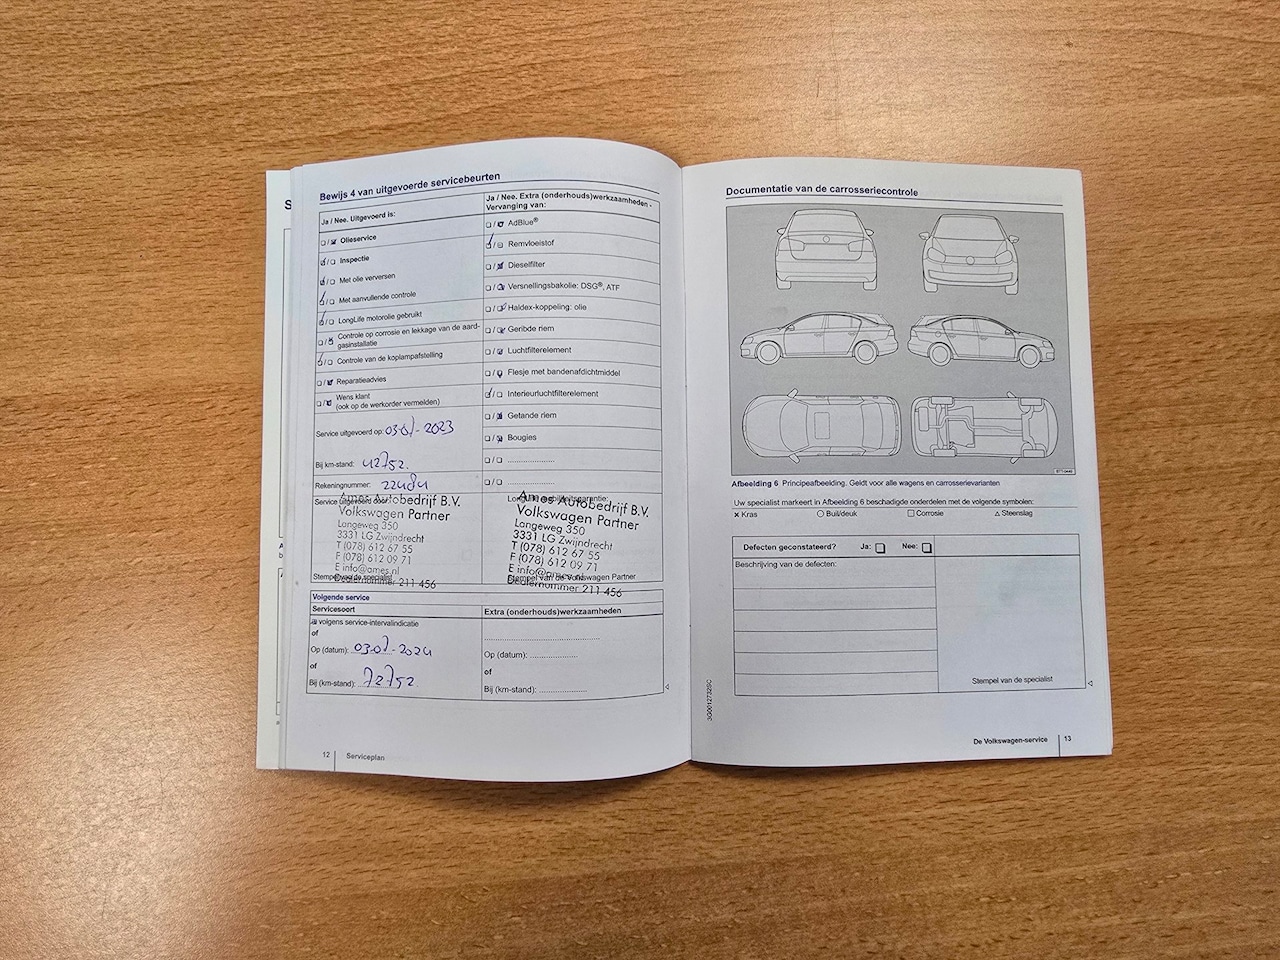 Bewijs 4 van uitgevoerde servicebeurten
Ja / Nee. Uitgevoerd is:
Olieservice
Inspectie
Met olie verversen
Met aanvullende controle
LongLife motorolie gebruikt
Controle op corrosie en lekkage van de aard-
gasinstallatie
Controle van de koplampafstelling
Reparatieadvies
Wens klant
(ook op de werkorder vermelden)
Service uitgevoerd op: 03-07-2023
Bij km-stand: 42752.
Rekeningnummer:
Service uitgevoerd door:
Ames Autobedrijf B.V.
Volkswagen Partner
Langeweg 350
3331 LG Zwijndrecht
T (078) 612 67 55
F (078) 612 09 71
E info@ames.nl
Dealernummer 211 456
Stempel van de specialist
Ja / Nee. Extra (onderhouds)werkzaamheden -
Vervanging van:
AdBlue®
Remvloeistof
Dieselfilter
Versnellingsbakolie: DSG®, ATF
Haldex-koppeling: olie
Geribde riem
Luchtfilterelement
Flesje met bandenafdichtmiddel
Interieurluchtfilterelement
Getande riem
Bougies
Ames Autobedrijf B.V.
Volkswagen Partner
Langeweg 350
3331 LG Zwijndrecht
T (078) 612 67 55
F (078) 612 09 71
E info@ames.nl
Dealernummer 211 456
Stempel van de Volkswagen Partner
Volgende service
Servicesoort
volgens service-intervalindicatie
of
Op (datum): 03-07-2024
of
Bij (km-stand): 72752
Extra (onderhouds)werkzaamheden
Op (datum):
of
Bij (km-stand):
12 Serviceplan
Documentatie van de carrosseriecontrole
Afbeelding 6 Principeafbeelding. Geldt voor alle wagens en carrosserievarianten
Uw specialist markeert in Afbeelding 6 beschadigde onderdelen met de volgende symbolen:
× Kras ○ Buil/deuk □ Corrosie △ Steenslag
Defecten geconstateerd? Ja: Nee:
Beschrijving van de defecten:
Stempel van de specialist
3G0012732SC
De Volkswagen-service 13